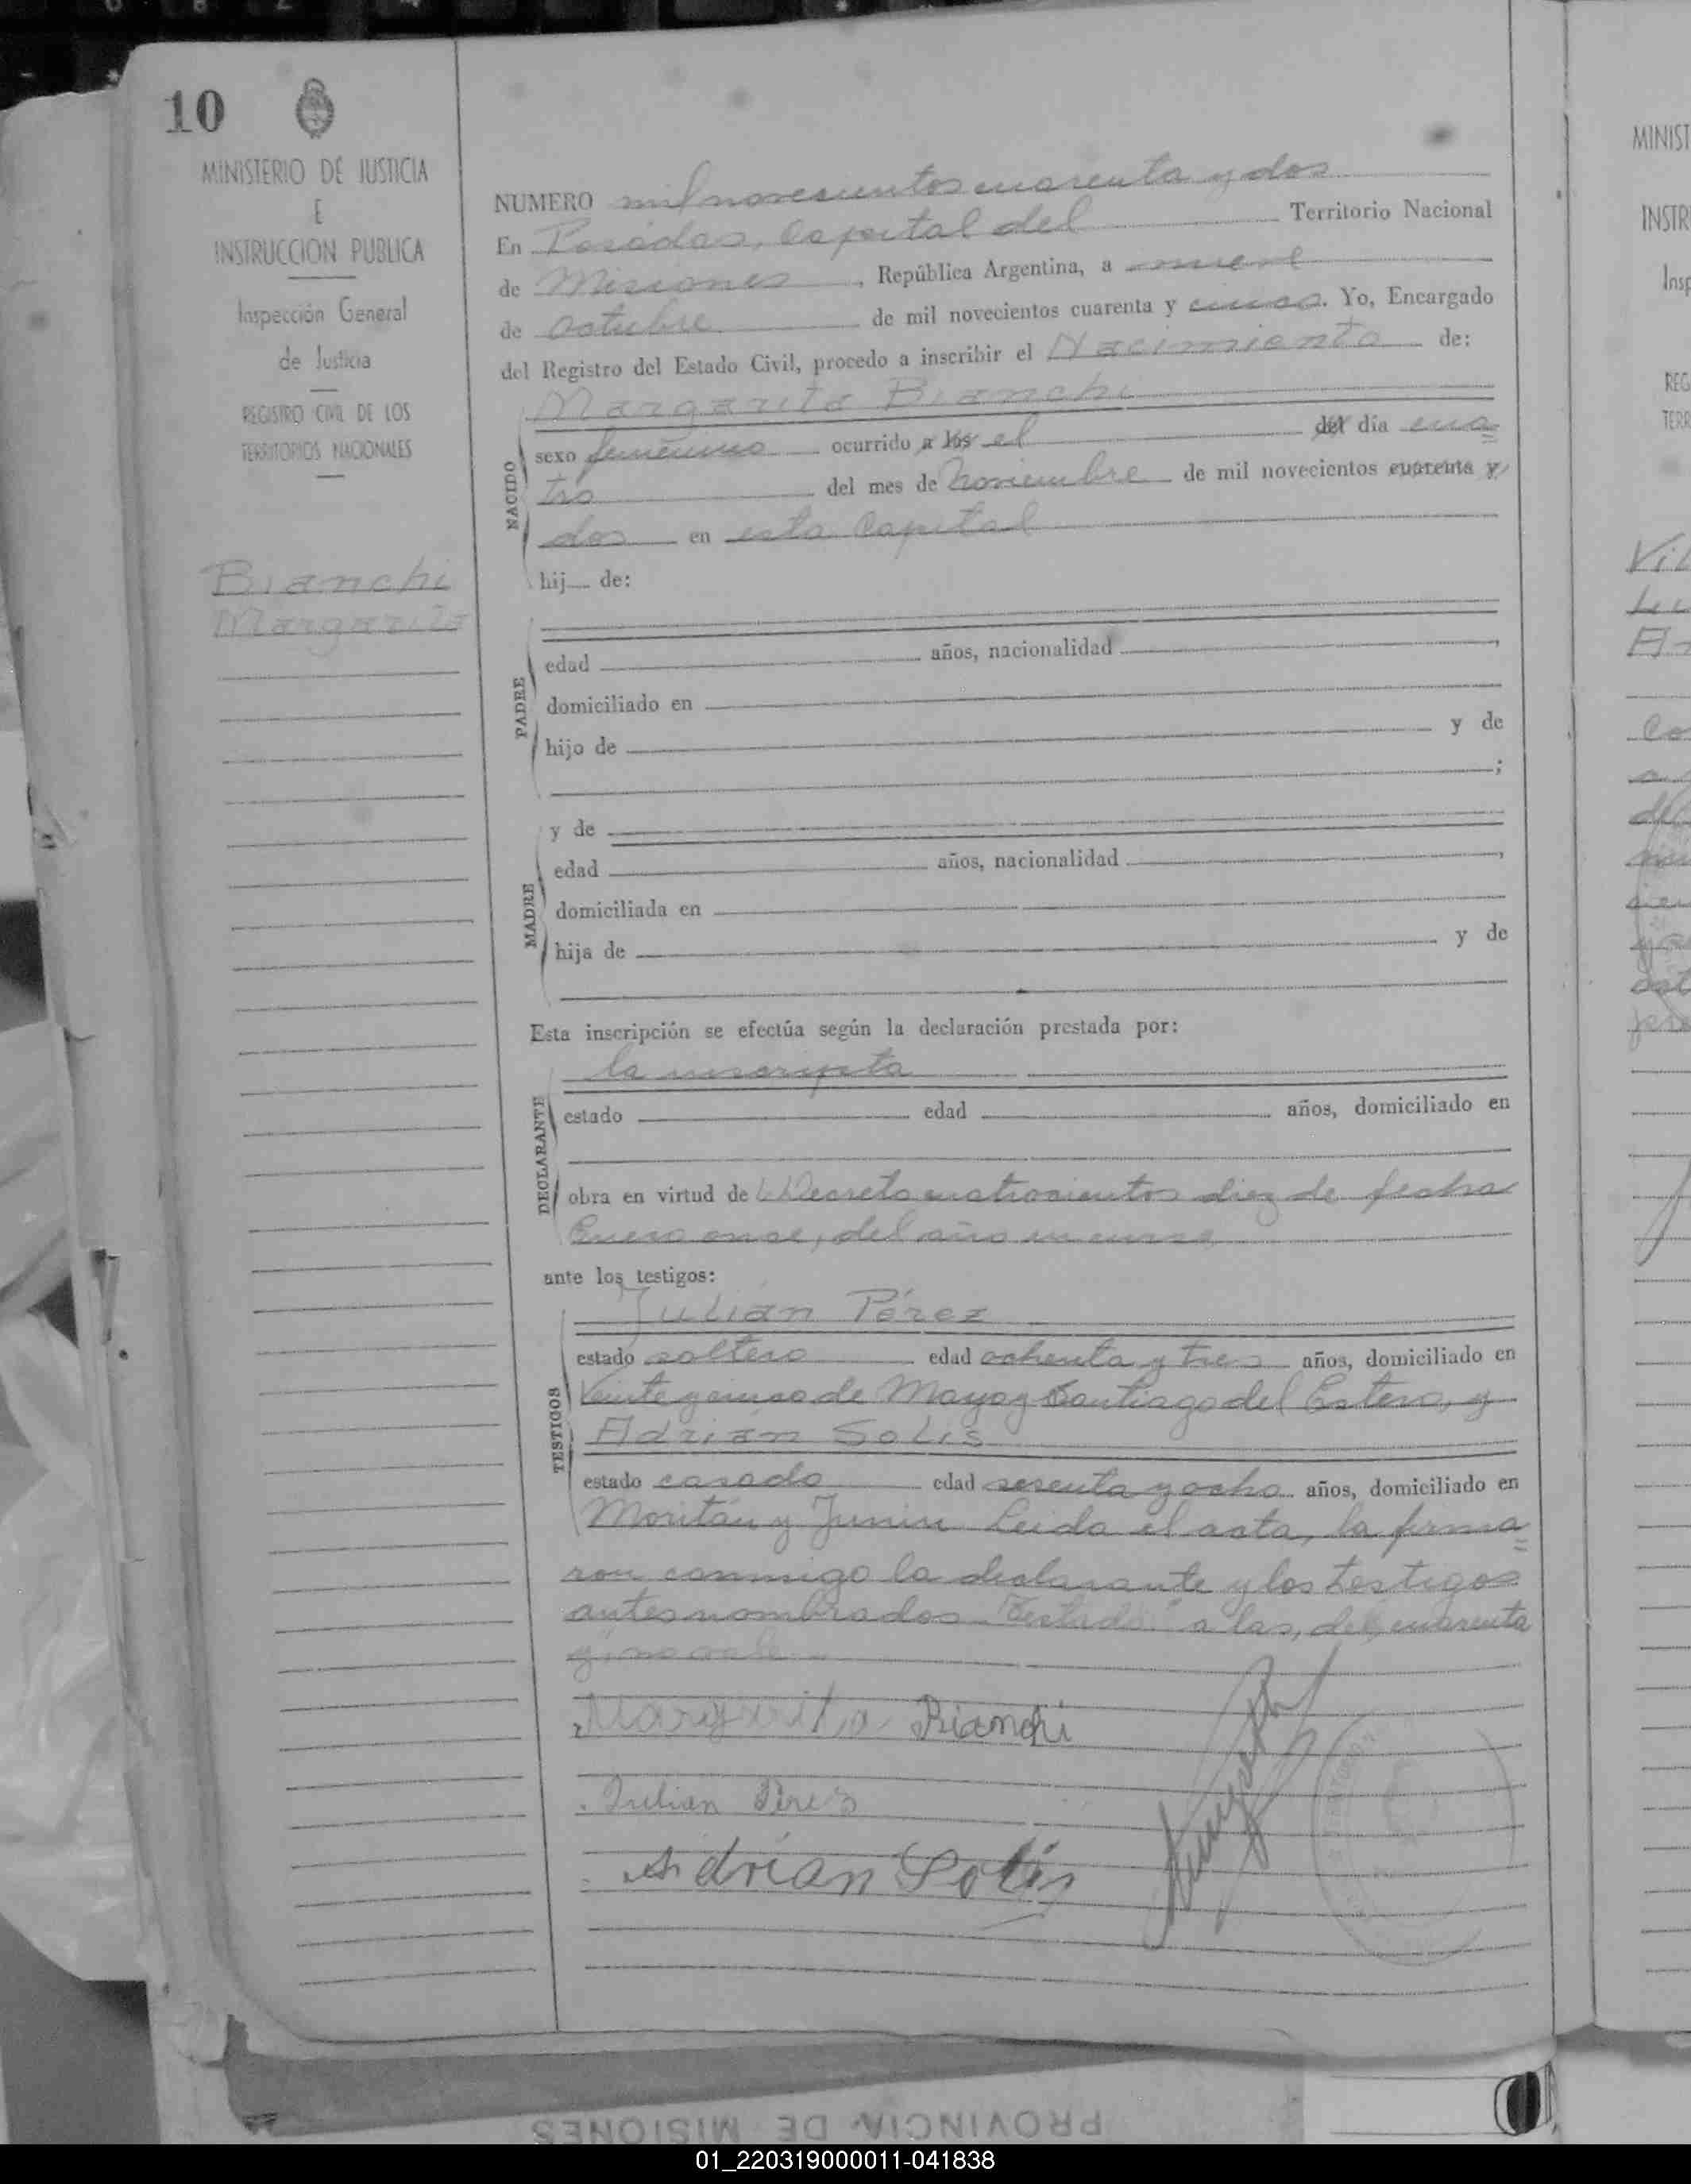 10
MINISTERIO DE JUSTICIA
E
INSTRUCCION PUBLICA
Inspección General
de Justicia
REGISTRO CIVIL DE LOS
TERRITORIOS NACIONALES
Bianchi
Margarita
NUMERO mil novecientos cuarenta y dos
En Posadas, Capital del Territorio Nacional
de Misiones, República Argentina, a nueve
de octubre de mil novecientos cuarenta y cinco. Yo, Encargado
del Registro del Estado Civil, procedo a inscribir el Nacimiento de:
Margarita Bianchi
NACIDO
sexo femenino ocurrido a las el del día cua=
tro del mes de noviembre de mil novecientos cuarenta y
dos en esta Capital
hij de:
PADRE
edad años, nacionalidad ,
domiciliado en
hijo de y de
;
y de
MADRE
edad años, nacionalidad ,
domiciliada en
hija de y de
Esta inscripción se efectúa según la declaración prestada por:
la inscripta
DECLARANTE
estado edad años, domiciliado en
obra en virtud de Decreto cuatrocientos diez de fecha
Enero once, del año en curso
ante los testigos:
Julián Pérez
TESTIGOS
estado soltero edad ochenta y tres años, domiciliado en
Veinte y cinco de Mayo y Santiago del Estero, y
Adrián Solís
estado casado edad sesenta y ocho años, domiciliado en
Moritán y Junin Leida el acta, la firma=
ron conmigo la declarante y los testigos
antes nombrados. Testado: "a las, del, cuarenta
y" no vale.
Margarita Bianchi
Julián Pérez
Adrián Solís
PROVINCIA DE MISIONES
MINIST
INSTR
Insp
REG
TERR
01_220319000011-041838